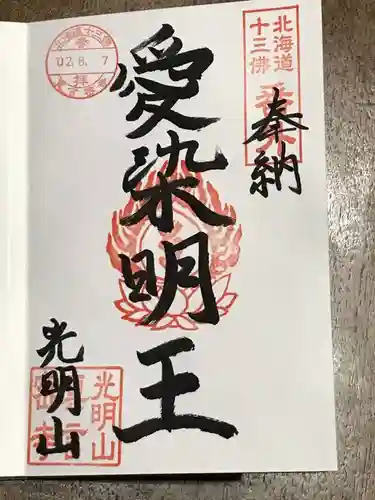 北海道
十三佛
奉納
愛染明王
02.8.7
拝
光明山
光明山